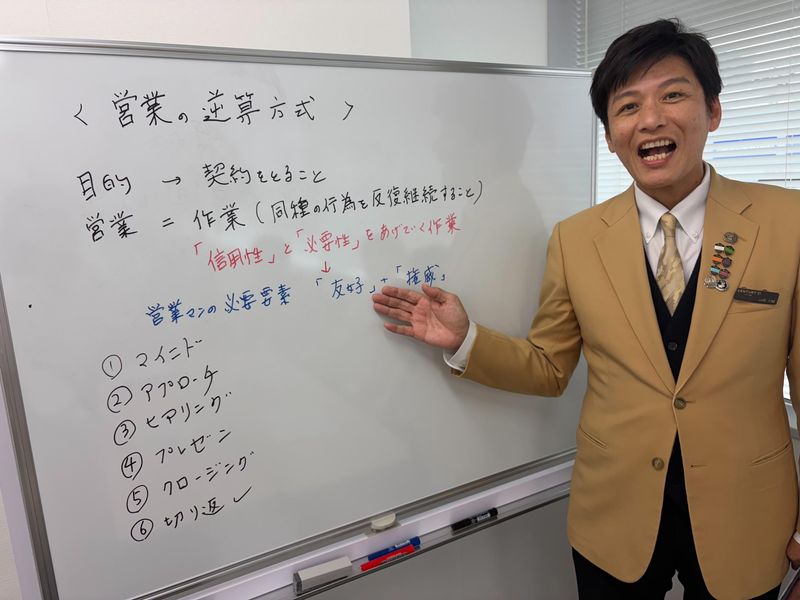 〈 営業の逆算方式 〉
目的 → 契約をとること
営業 = 作業(同種の行為を反復継続すること)
「信用性」と「必要性」をあげていく作業
↓
営業マンの必要要素 「友好」+「権威」
① マインド
② アプローチ
③ ヒアリング
④ プレゼン
⑤ クロージング
⑥ 切り返し
CENTURY 21